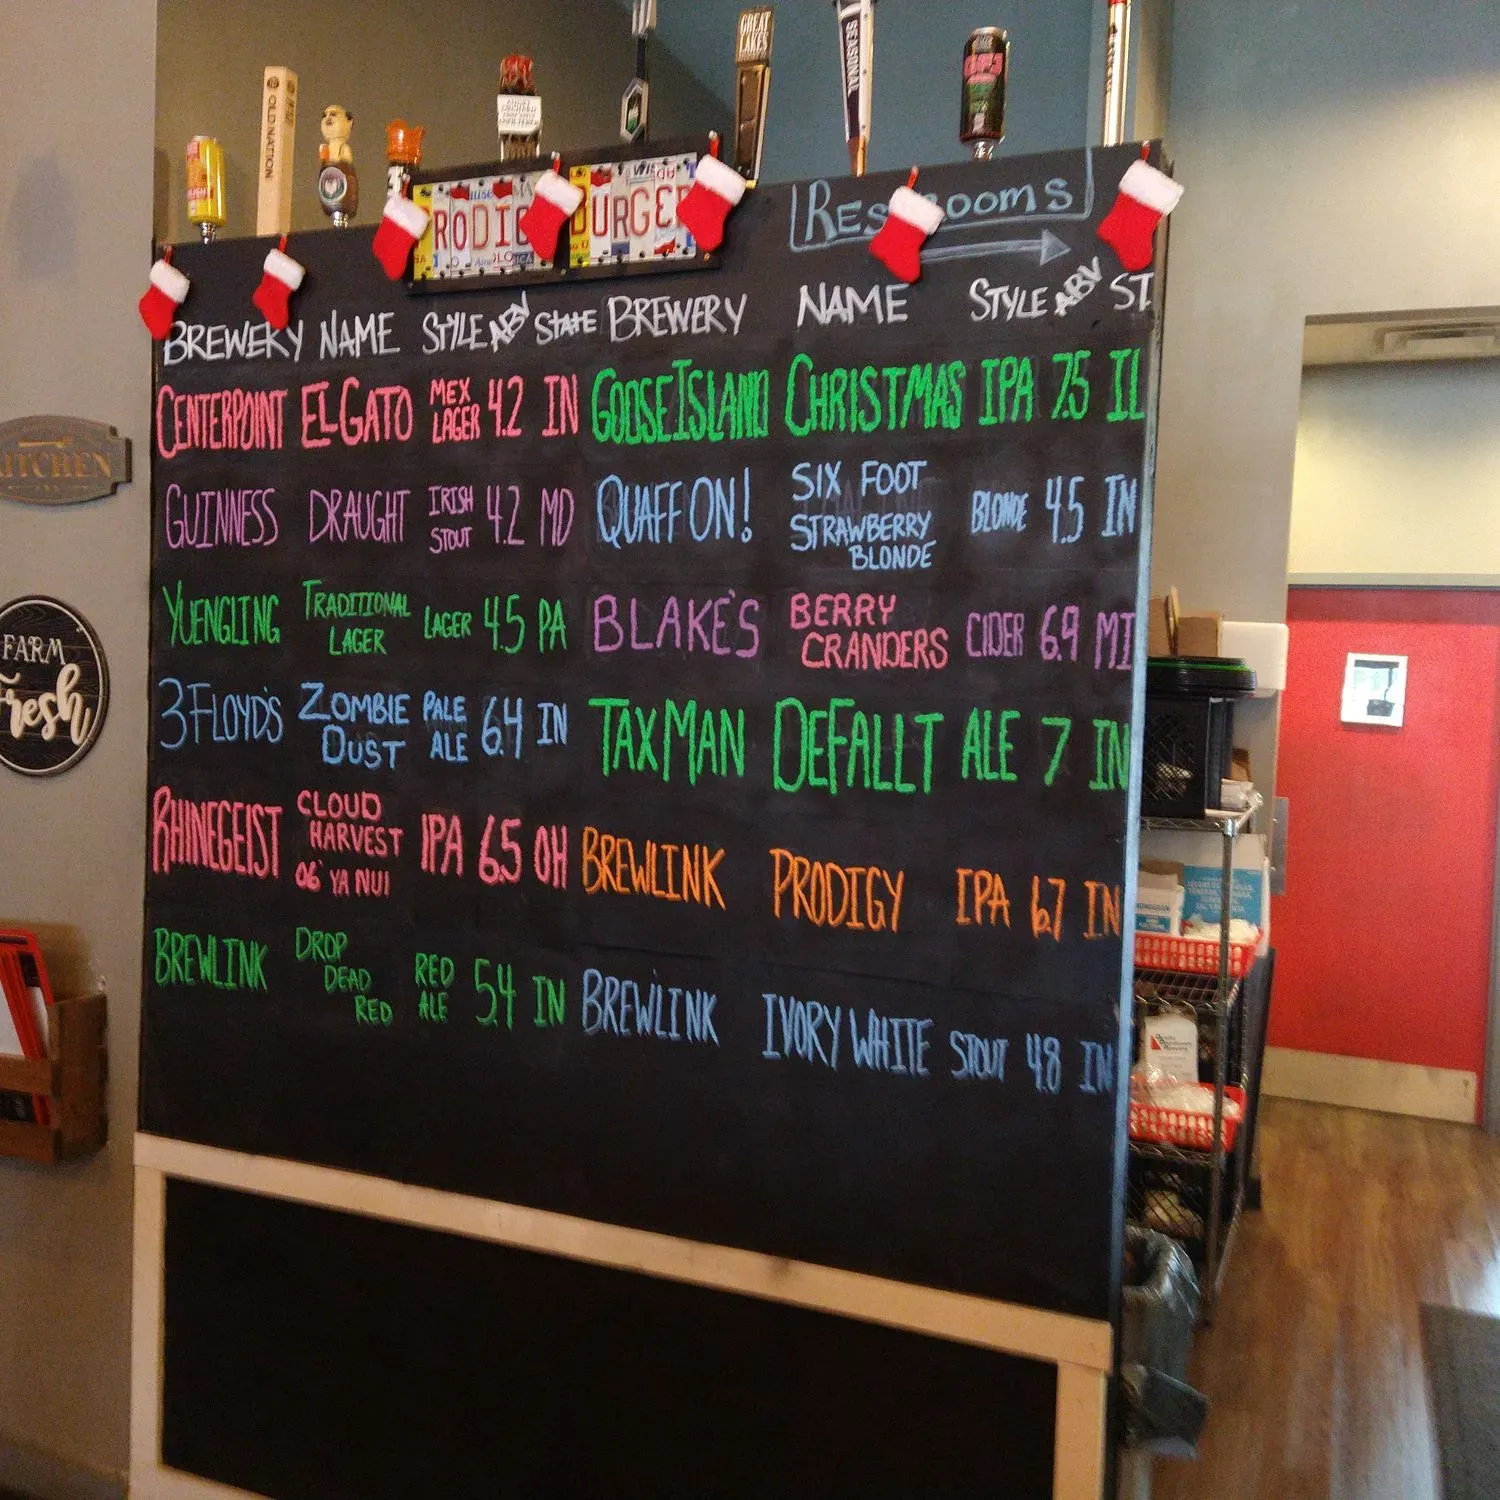 OLD NATION
GREAT LAKES
SEASONAL
ANGRY ORCHARD
RODIG BURGER
RESTROOMS
BREWERY NAME STYLE ABV STATE BREWERY NAME STYLE ABV ST
CENTERPOINT EL GATO MEX LAGER 4.2 IN
GOOSE ISLAND CHRISTMAS IPA 7.5 IL
GUINNESS DRAUGHT IRISH STOUT 4.2 MD
QUAFF ON! SIX FOOT STRAWBERRY BLONDE BLONDE 4.5 IN
YUENGLING TRADITIONAL LAGER LAGER 4.5 PA
BLAKE'S BERRY CRANDERS CIDER 6.9 MI
3 FLOYD'S ZOMBIE DUST PALE ALE 6.4 IN
TAXMAN DEFALLT ALE 7 IN
RHINEGEIST CLOUD HARVEST 06' YA NUI IPA 6.5 OH
BREWLINK PRODIGY IPA 6.7 IN
BREWLINK DROP DEAD RED RED ALE 5.4 IN
BREWLINK IVORY WHITE STOUT 4.8 IN
KITCHEN
FARM
Fresh